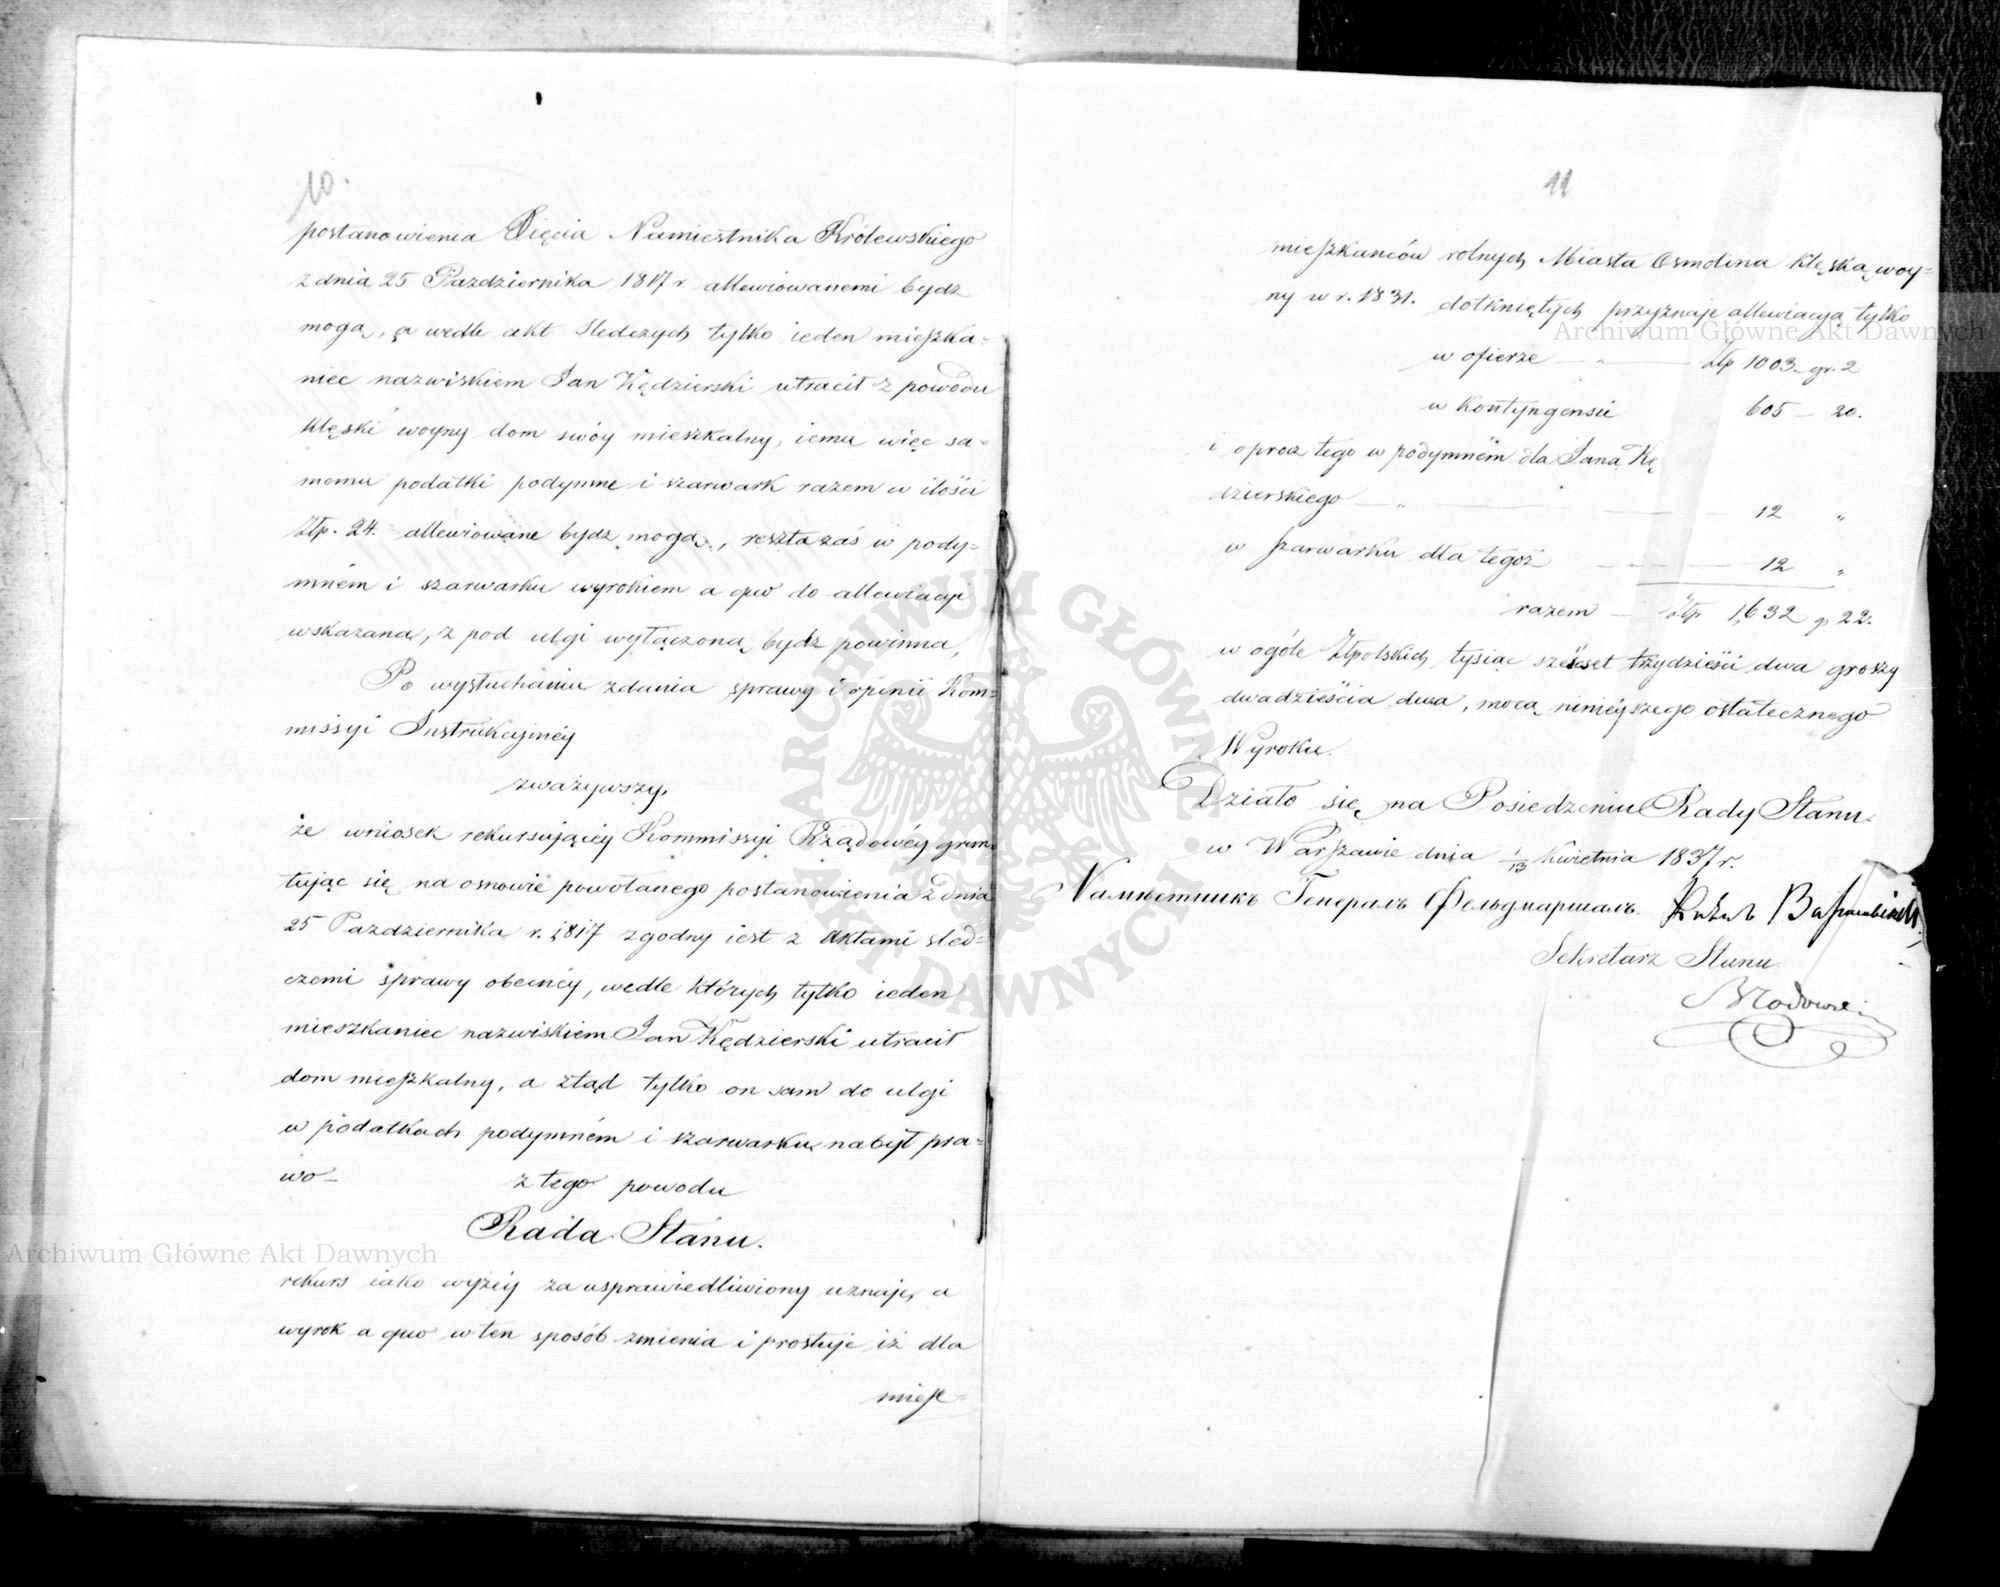 10.
postanowienia Xięcia Namiestnika Królewskiego
z dnia 25 Pazdziernika 1817 r. allewiowanemi bydz
mogą, a wedle akt śledczych tylko ieden mieszka=
niec nazwiskiem Jan Kędzierski utracił z powodu
klęski woyny dom swóy mieszkalny, iemu więc sa=
memu podatki podymne i szarwark razem w ilości
Złp. 24. allewiowane bydz mogą, reszta zaś w pody=
mném i szarwarku wyrokiem a quo do allewiacyi
wskazana, z pod ulgi wyłączoną bydz powinna,
Po wysłuchaniu zdania sprawy i opinii Kom=
missyi Instrukcyinéy
zważywszy,
że wniosek rekursuiącéy Kommissyi Rządowéy grun=
tując się na osnowie powołanego postanowienia z dnia
25 Pazdziernika r. 1817 zgodny iest z Aktami śled=
czemi sprawy obecnéy, wedle których tylko ieden
mieszkaniec nazwiskiem Jan Kędzierski utracił
dom mieszkalny, a ztąd tylko on sam do ulgi
w podatkach podymném i szarwarku nabył pra=
wo – z tego powodu
Rada Stanu.
rekurs iako wyżéy za usprawiedliwiony uznaje, a
wyrok a quo w ten sposób zmienia i prostuje iż dla
miesz=
11
mieszkanców rolnych Miasta Osmolina klęską woy=
ny w r. 1831. dotkniętych przyznaje allewiacyą tylko
w ofierze — „ — Złp 1003 – gr. 2
w Kontyngensie 605 – 20.
i oprocz tego w podymném dla Jana Kę
dzierskiego — „ — 12 „
w szarwarku dla tegoż — 12 „
razem — Złp. 1,632 g. 22.
w ogóle Złpolskich tysiąc sześćset trzydzieści dwa groszy
dwadzieścia dwa, mocą ninieyszego ostatecznego
Wyroku.
Działo się na Posiedzeniu Rady Stanu.
w Warszawie dnia 1/13 Kwietnia 1837 r.
Намѣстникъ Генералъ Фельдмаршалъ. Князь Варшавскій
Sekretarz Stanu
Archiwum Główne Akt Dawnych
Archiwum Główne Akt Dawnych
ARCHIWUM GŁÓWNE AKT DAWNYCH